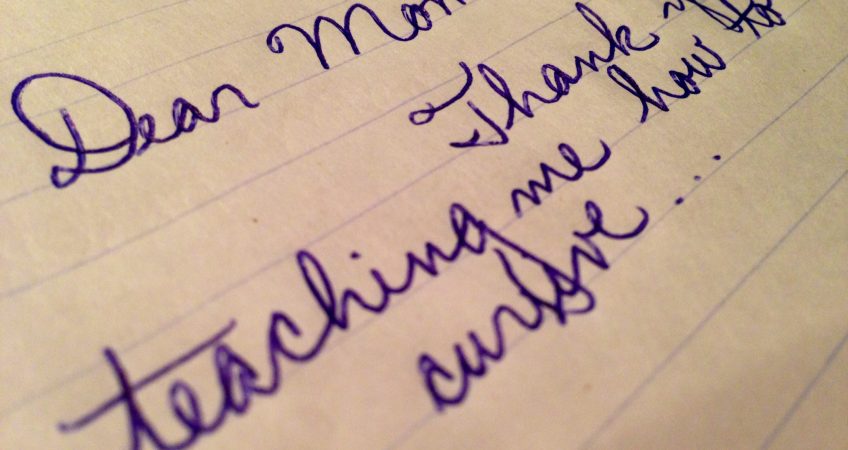 Dear Mom
Thank
teaching me how to
cursive...